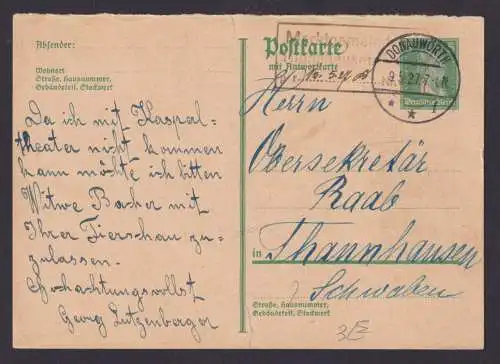 Absender:
Wohnort
Straße, Hausnummer,
Gebäudeteil, Stockwerk
Da ich mit Kasperl-
theater nicht kommen
kann möchte ich bitten
Witwe Bacher mit
Ihrer Tierschau zu-
zulassen.
Hochachtungsvollst
Georg Lutzenberger
Postkarte
mit Antwortkarte
DONAUWÖRTH
9.5.27.7-8N.
Deutsches Reich
Herrn
Obersekretär
Raab
in Thannhausen
Schwaben
Straße, Hausnummer,
Gebäudeteil, Stockwerk